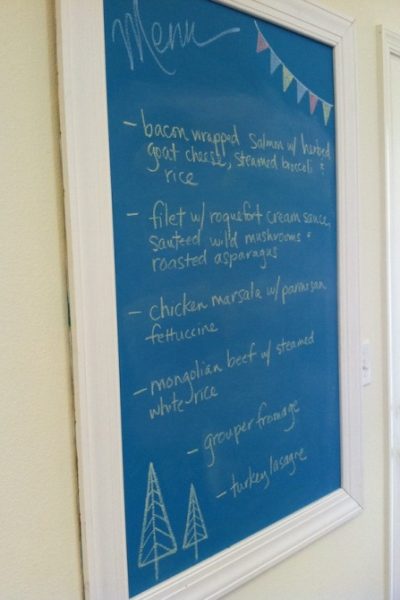 Menu
- bacon wrapped salmon w/ herbed
goat cheese, steamed broccoli +
rice
- filet w/ roquefort cream sauce,
sauteed wild mushrooms +
roasted asparagus
- chicken marsala w/ parmisan
fettuccine
- mongolian beef w/ steamed
white rice
- grouper fromage
- turkey lasagne